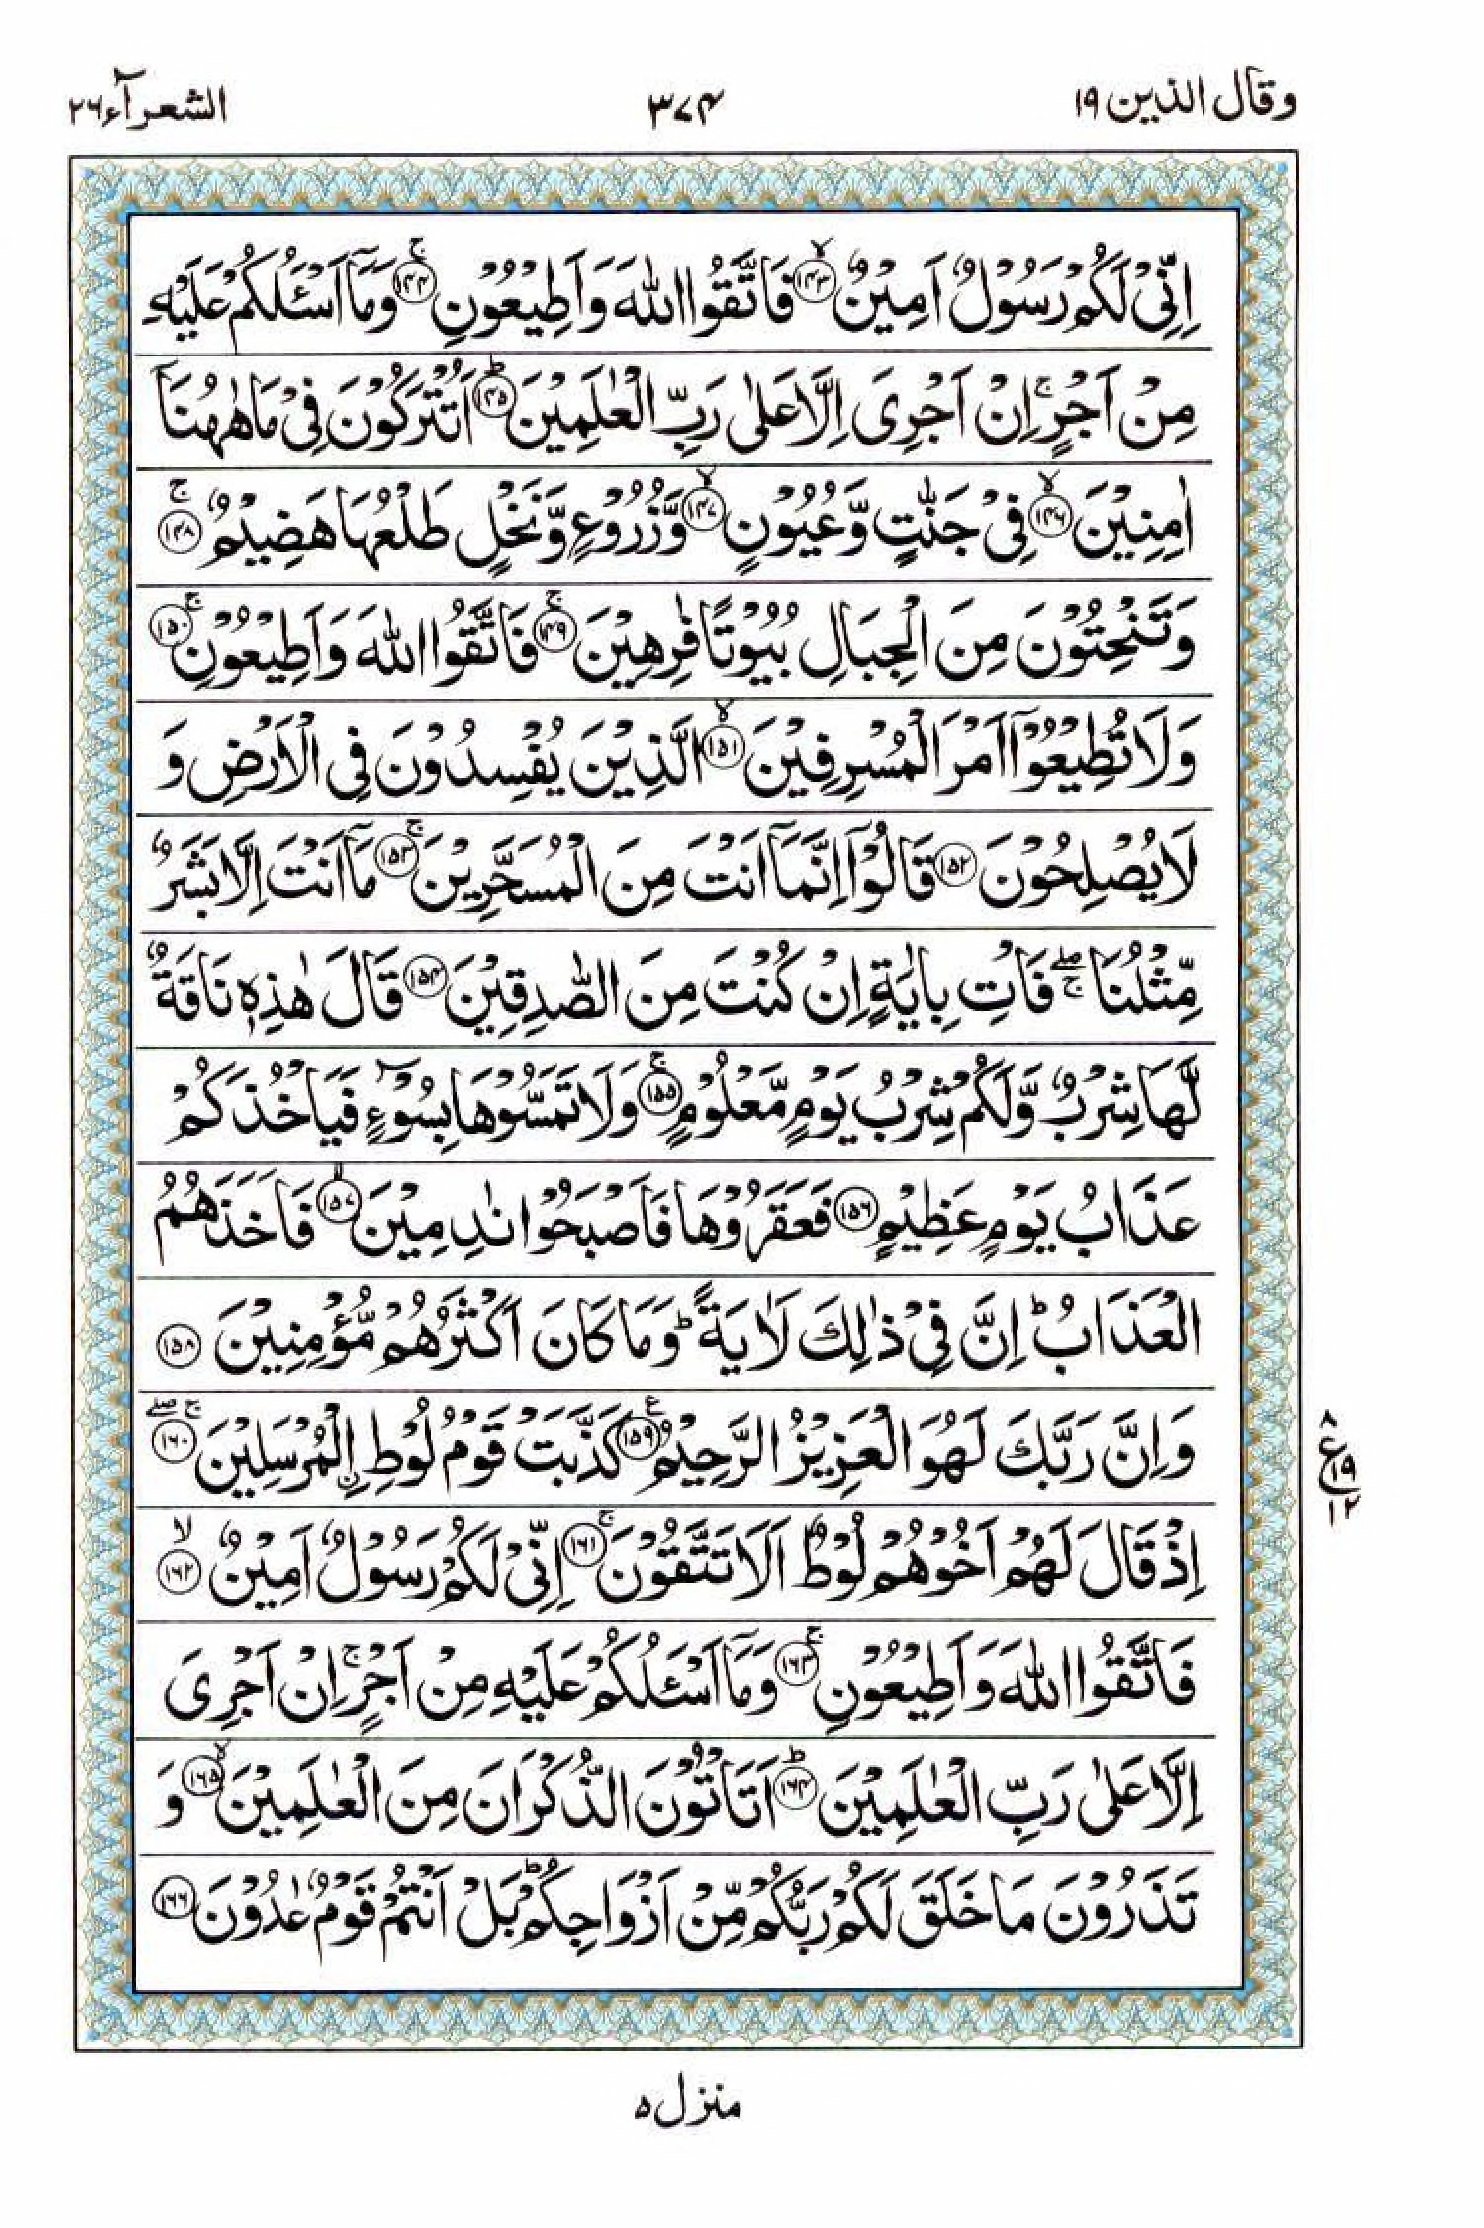 وقال الذين ١٩
٣٧٤
الشعرآء ٢٦
اِنِّیْ لَكُمْ رَسُوْلٌ اَمِیْنٌ ۙ﴿۱۴۳﴾ فَاتَّقُوا اللّٰهَ وَ اَطِیْعُوْنِ ۚ﴿۱۴۴﴾ وَ مَاۤ اَسْـَٔلُكُمْ عَلَیْهِ
مِنْ اَجْرٍ ۚ اِنْ اَجْرِیَ اِلَّا عَلٰی رَبِّ الْعٰلَمِیْنَ ؕ﴿۱۴۵﴾ اَتُتْرَكُوْنَ فِیْ مَا هٰهُنَاۤ
اٰمِنِیْنَ ۙ﴿۱۴۶﴾ فِیْ جَنّٰتٍ وَّ عُیُوْنٍ ۙ﴿۱۴۷﴾ وَّ زُرُوْعٍ وَّ نَخْلٍ طَلْعُهَا هَضِیْمٌ ۚ﴿۱۴۸﴾
وَ تَنْحِتُوْنَ مِنَ الْجِبَالِ بُیُوْتًا فٰرِهِیْنَ ۚ﴿۱۴۹﴾ فَاتَّقُوا اللّٰهَ وَ اَطِیْعُوْنِ ۚ﴿۱۵۰﴾
وَ لَا تُطِیْعُوْۤا اَمْرَ الْمُسْرِفِیْنَ ۙ﴿۱۵۱﴾ الَّذِیْنَ یُفْسِدُوْنَ فِی الْاَرْضِ وَ
لَا یُصْلِحُوْنَ ﴿۱۵۲﴾ قَالُوْۤا اِنَّمَاۤ اَنْتَ مِنَ الْمُسَحَّرِیْنَ ۚ﴿۱۵۳﴾ مَاۤ اَنْتَ اِلَّا بَشَرٌ
مِّثْلُنَا ۚۖ فَاْتِ بِاٰیَةٍ اِنْ كُنْتَ مِنَ الصّٰدِقِیْنَ ﴿۱۵۴﴾ قَالَ هٰذِهٖ نَاقَةٌ
لَّهَا شِرْبٌ وَّ لَكُمْ شِرْبُ یَوْمٍ مَّعْلُوْمٍ ۚ﴿۱۵۵﴾ وَ لَا تَمَسُّوْهَا بِسُوْٓءٍ فَیَاْخُذَكُمْ
عَذَابُ یَوْمٍ عَظِیْمٍ ﴿۱۵۶﴾ فَعَقَرُوْهَا فَاَصْبَحُوْا نٰدِمِیْنَ ۙ﴿۱۵۷﴾ فَاَخَذَهُمُ
الْعَذَابُ ؕ اِنَّ فِیْ ذٰلِكَ لَاٰیَةً ؕ وَ مَا كَانَ اَكْثَرُهُمْ مُّؤْمِنِیْنَ ﴿۱۵۸﴾
وَ اِنَّ رَبَّكَ لَهُوَ الْعَزِیْزُ الرَّحِیْمُ ﴿۱۵۹﴾ع كَذَّبَتْ قَوْمُ لُوْطِ ِ۟الْمُرْسَلِیْنَ ۚۖ﴿۱۶۰﴾
٨
ع ١٩
١٢
اِذْ قَالَ لَهُمْ اَخُوْهُمْ لُوْطٌ اَلَا تَتَّقُوْنَ ۚ﴿۱۶۱﴾ اِنِّیْ لَكُمْ رَسُوْلٌ اَمِیْنٌ ۙ﴿۱۶۲﴾
فَاتَّقُوا اللّٰهَ وَ اَطِیْعُوْنِ ۚ﴿۱۶۳﴾ وَ مَاۤ اَسْـَٔلُكُمْ عَلَیْهِ مِنْ اَجْرٍ ۚ اِنْ اَجْرِیَ
اِلَّا عَلٰی رَبِّ الْعٰلَمِیْنَ ؕ﴿۱۶۴﴾ اَتَاْتُوْنَ الذُّكْرَانَ مِنَ الْعٰلَمِیْنَ ۙ﴿۱۶۵﴾ وَ
تَذَرُوْنَ مَا خَلَقَ لَكُمْ رَبُّكُمْ مِّنْ اَزْوَاجِكُمْ ؕ بَلْ اَنْتُمْ قَوْمٌ عٰدُوْنَ ﴿۱۶۶﴾
منزل ٥